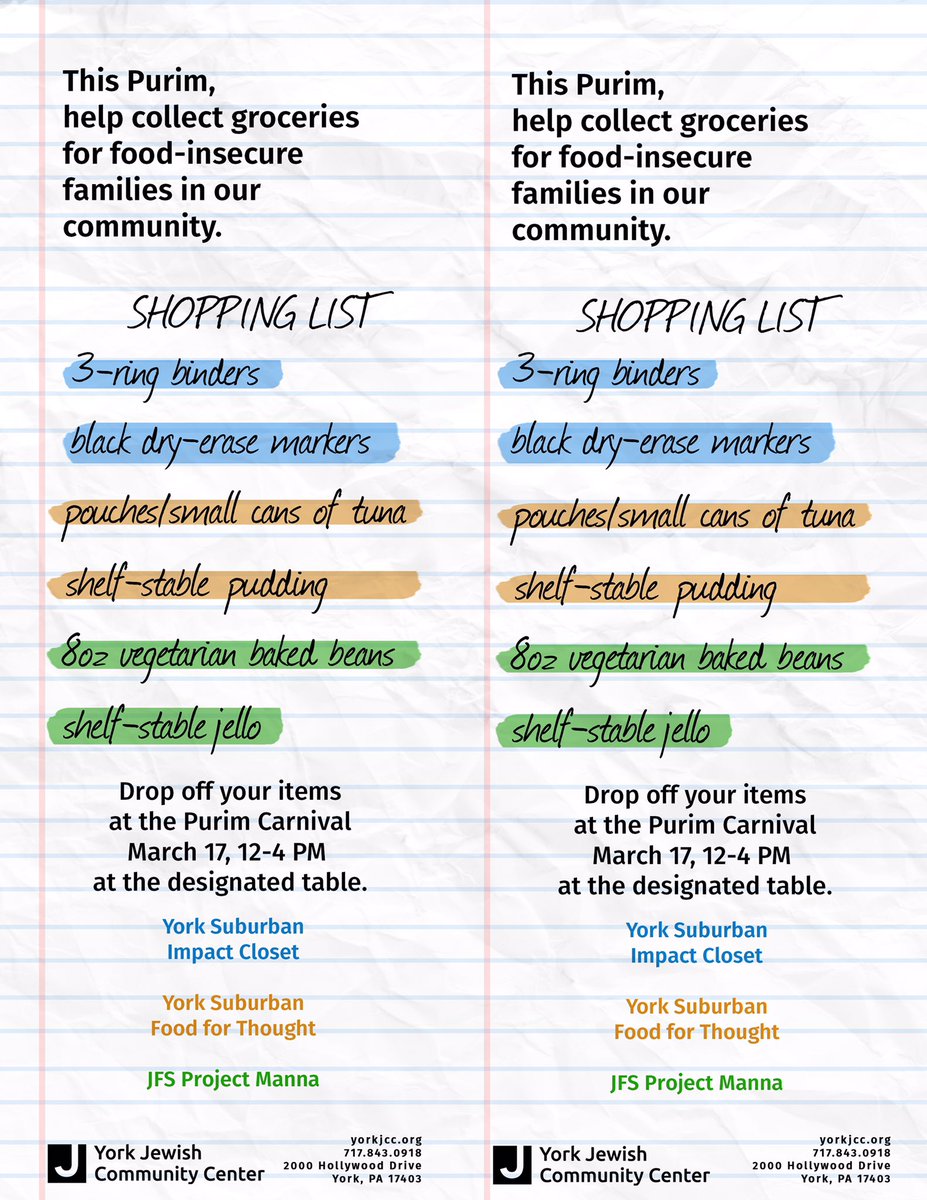 This Purim,
help collect groceries
for food-insecure
families in our
community.
SHOPPING LIST
3-ring binders
black dry-erase markers
pouches/small cans of tuna
shelf-stable pudding
8oz vegetarian baked beans
shelf-stable jello
Drop off your items
at the Purim Carnival
March 17, 12-4 PM
at the designated table.
York Suburban
Impact Closet
York Suburban
Food for Thought
JFS Project Manna
J
York Jewish
Community Center
yorkjcc.org
717.843.0918
2000 Hollywood Drive
York, PA 17403
This Purim,
help collect groceries
for food-insecure
families in our
community.
SHOPPING LIST
3-ring binders
black dry-erase markers
pouches/small cans of tuna
shelf-stable pudding
8oz vegetarian baked beans
shelf-stable jello
Drop off your items
at the Purim Carnival
March 17, 12-4 PM
at the designated table.
York Suburban
Impact Closet
York Suburban
Food for Thought
JFS Project Manna
J
York Jewish
Community Center
yorkjcc.org
717.843.0918
2000 Hollywood Drive
York, PA 17403